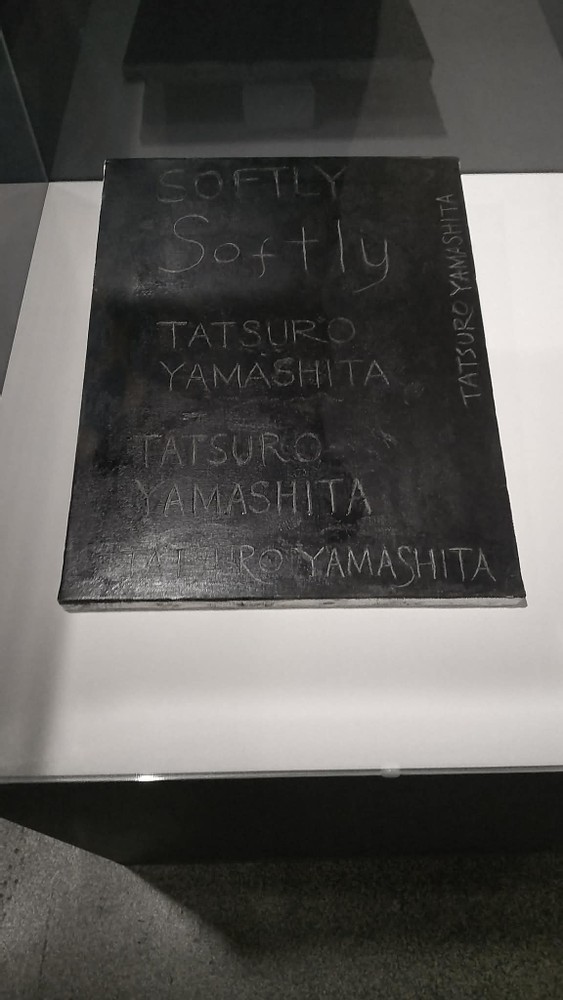 SOFTLY
Softly
TATSURO
YAMASHITA
TATSURO
YAMASHITA
TATSURO YAMASHITA
TATSURO YAMASHITA